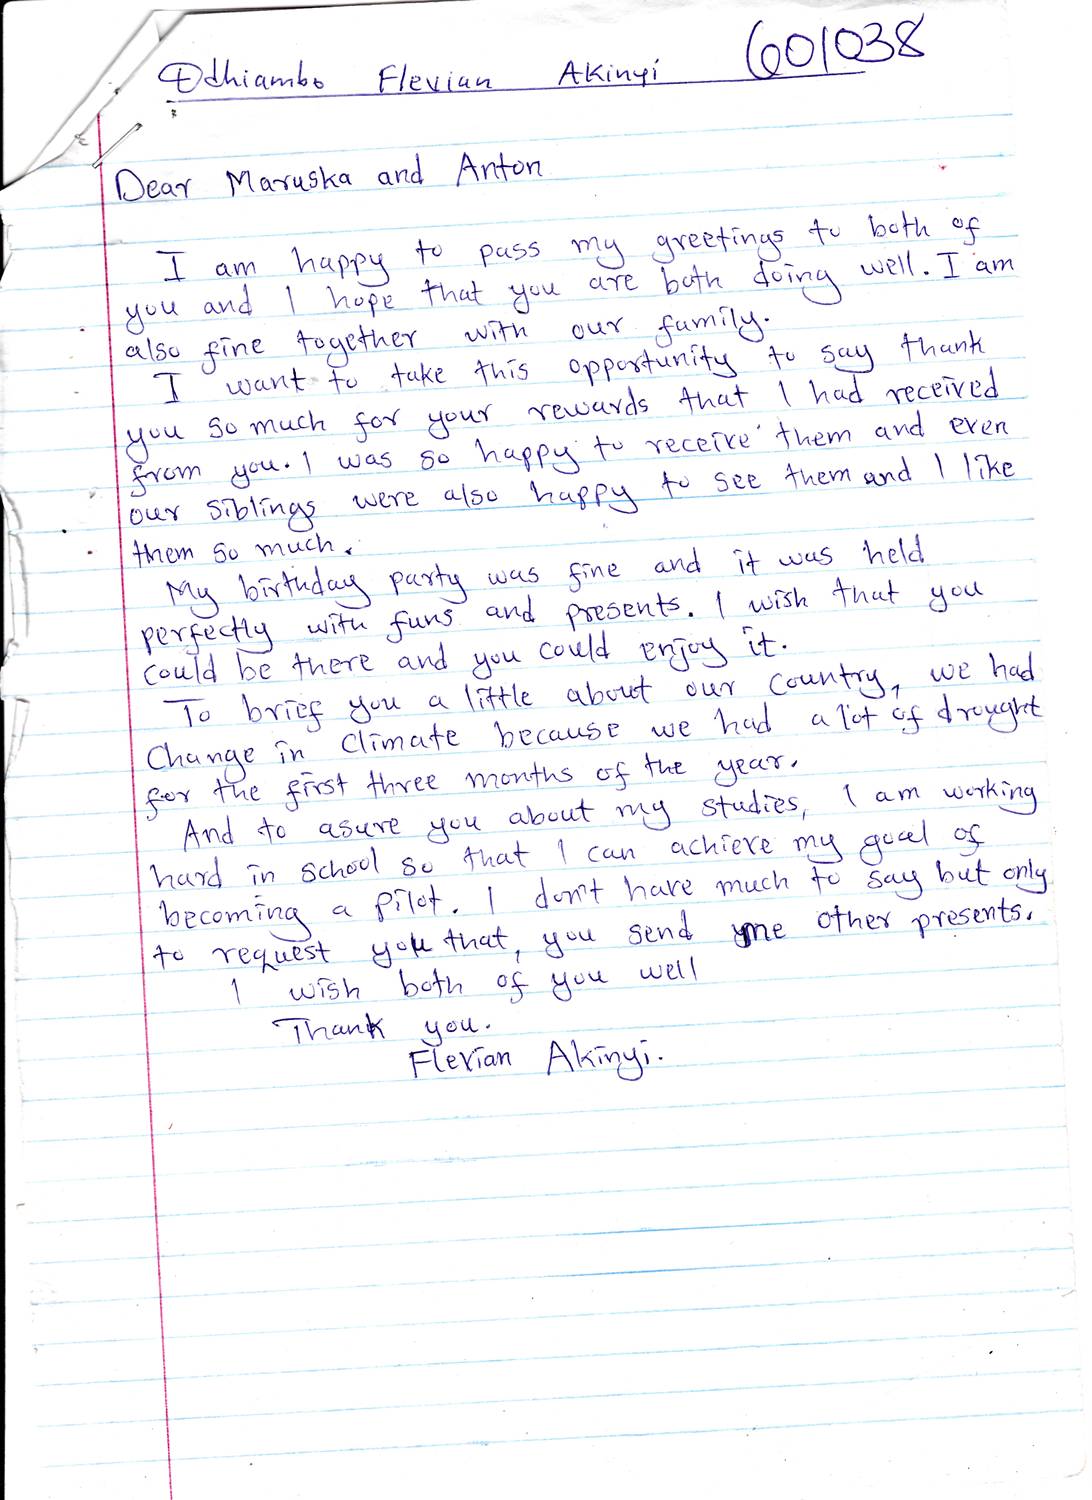 Odhiambo Flevian Akinyi 601038
Dear Maruska and Anton
I am happy to pass my greetings to both of
you and I hope that you are both doing well. I am
also fine together with our family.
I want to take this opportunity to say thank
you so much for your rewards that I had received
from you. I was so happy to receive them and even
our siblings were also happy to see them and I like
them so much.
My birthday party was fine and it was held
perfectly with funs and presents. I wish that you
could be there and you could enjoy it.
To brief you a little about our country, we had
Change in climate because we had a lot of drought
for the first three months of the year.
And to asure you about my studies, I am working
hard in school so that I can achieve my goal of
becoming a pilot. I don't have much to say but only
to request you that, you send me other presents.
I wish both of you well
Thank you.
Flevian Akinyi.